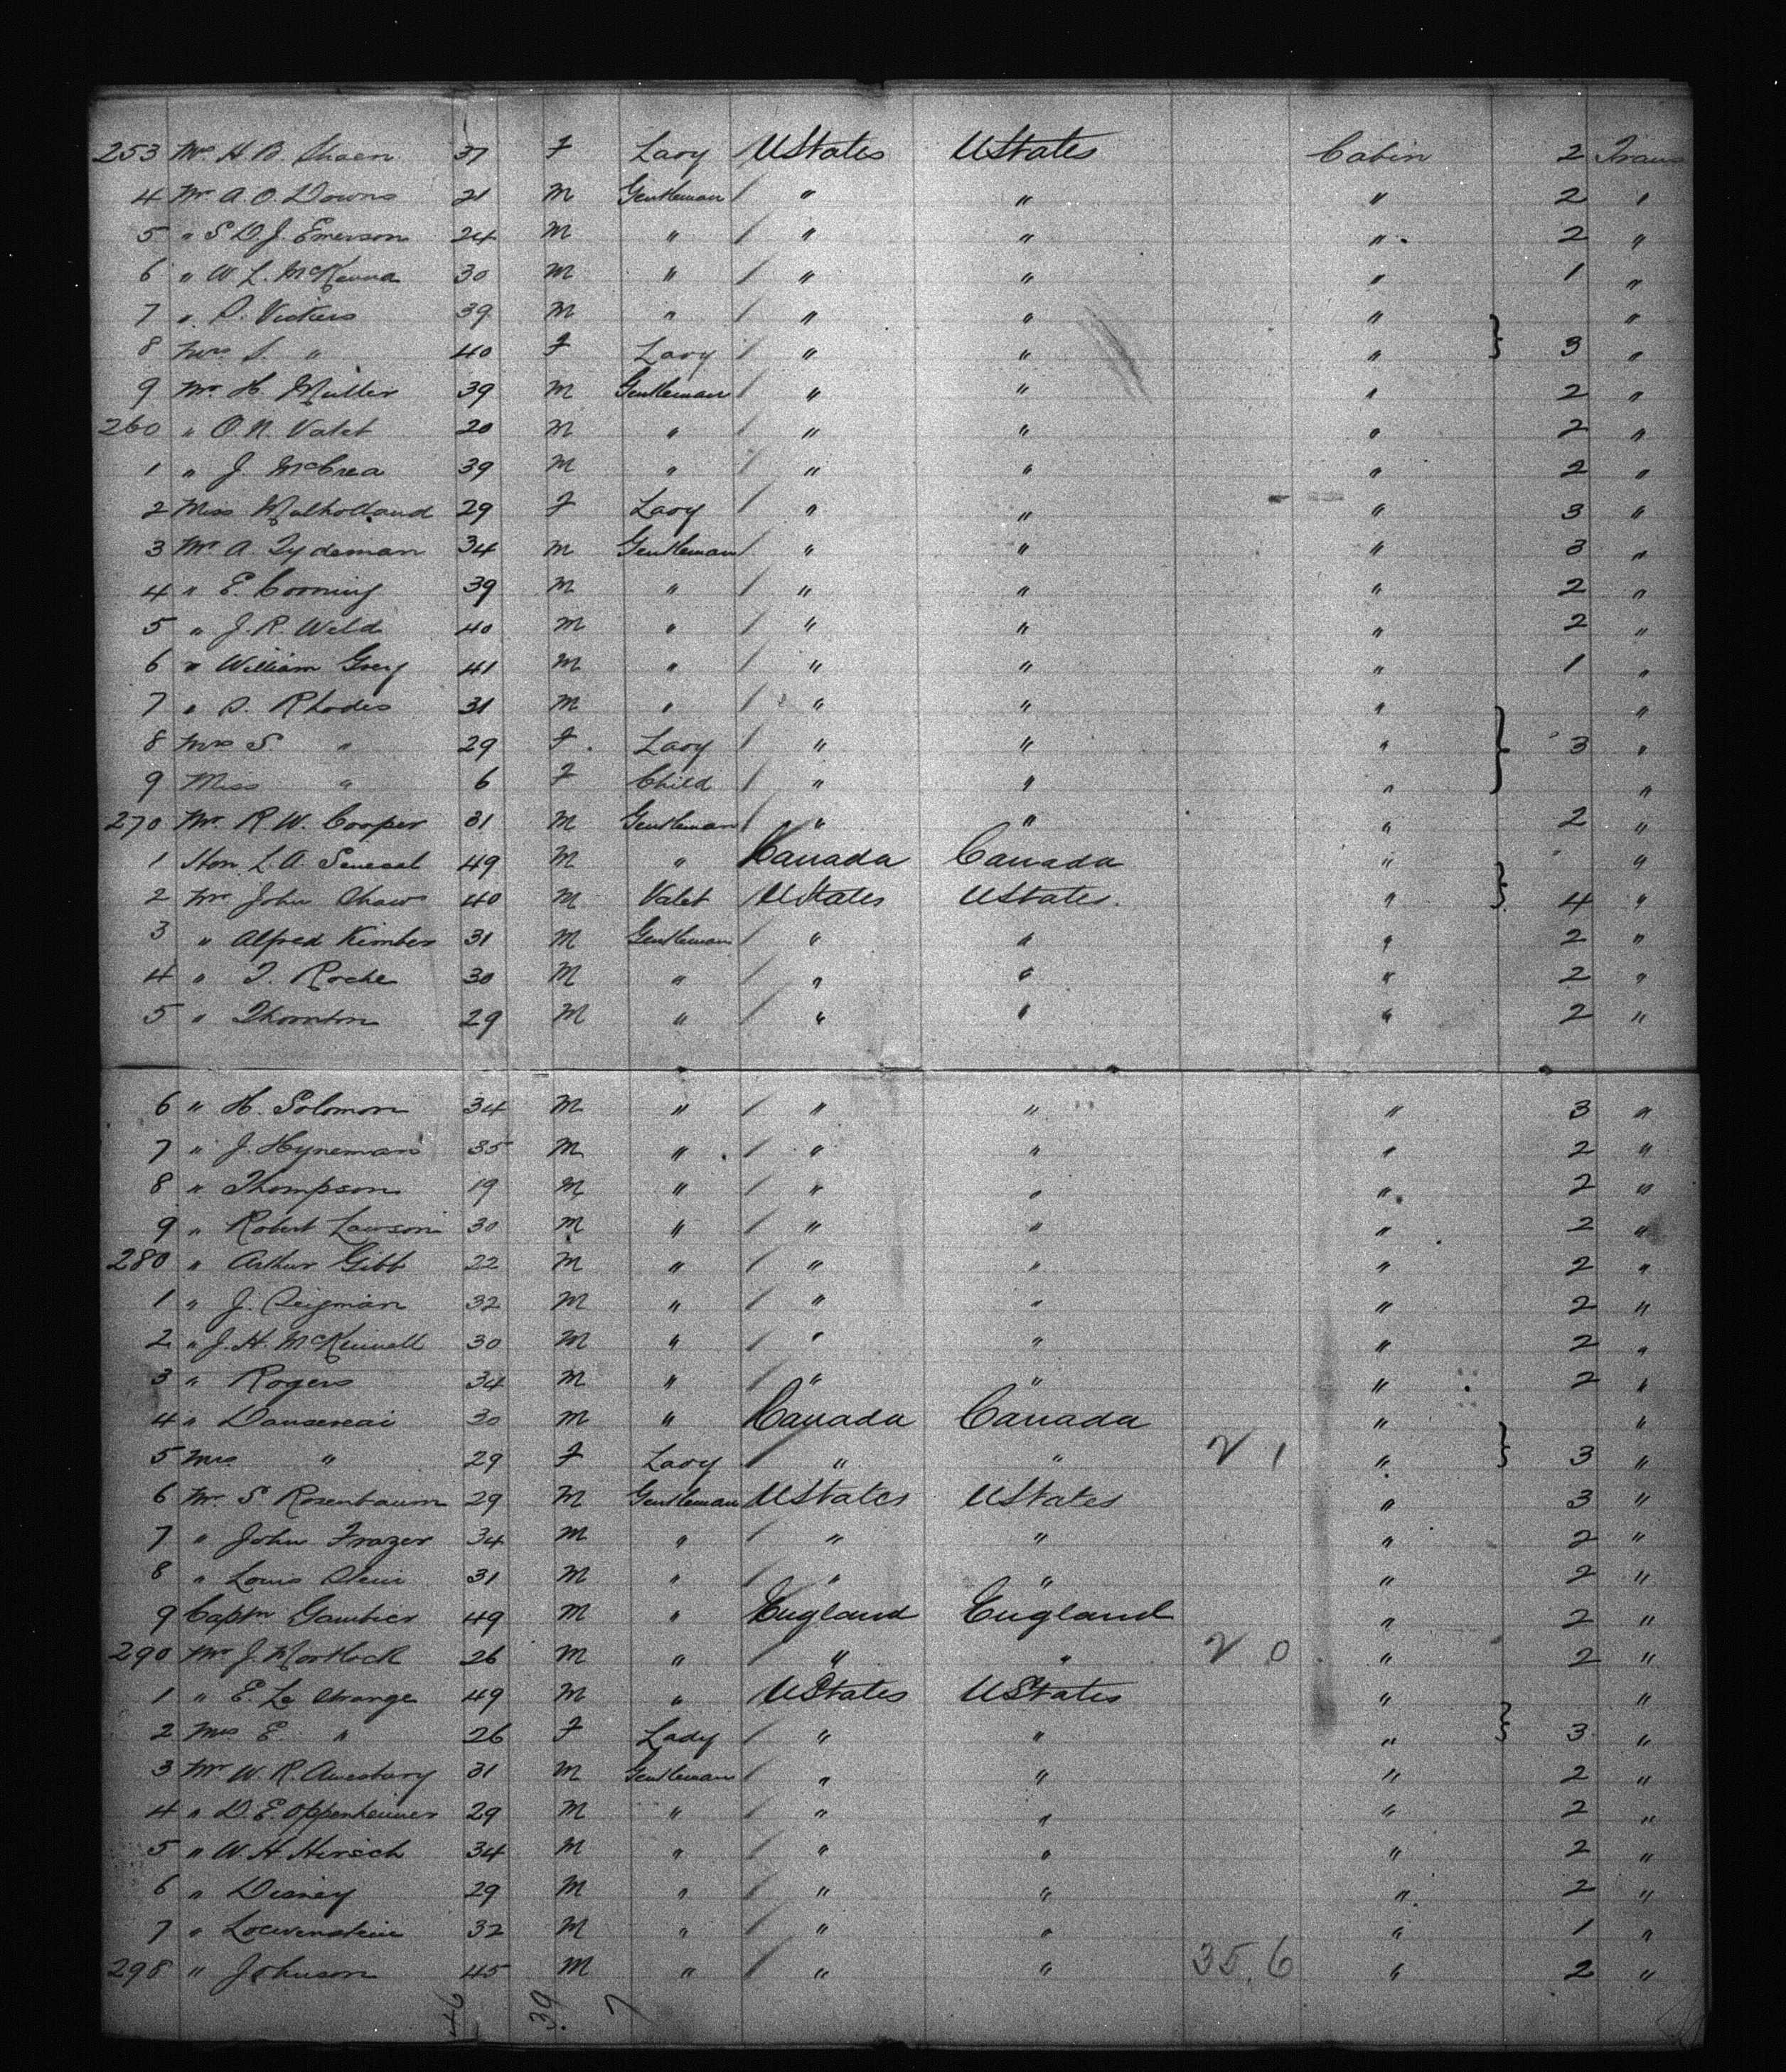 253 Mrs H. B. Shaen 37 F Lady UStates UStates Cabin 2 Trans
4 Mr A. O. Downs 21 M Gentleman " " " 2 "
5 " S. D. J. Emerson 24 M " " " " 2 "
6 " W. L. McKenna 30 M " " " " 1 "
7 " S. Vickers 39 M " " " " "
8 Mrs S. " 40 F Lady " " " } 3 "
9 Mr H. Muller 39 M Gentleman " " " 2 "
260 " O. N. Valet 20 M " " " " 2 "
1 " J. McCrea 39 M " " " " 2 "
2 Miss Mulholland 29 F Lady " " " 3 "
3 Mr A. Tydeman 34 M Gentleman " " " 3 "
4 " E. Corning 39 M " " " " 2 "
5 " J. R. Weld 40 M " " " " 2 "
6 " William Grey 41 M " " " " 1 "
7 " S. Rhodes 31 M " " " " "
8 Mrs S " 29 F Lady " " " } 3 "
9 Miss " 6 F Child " " " "
270 Mr R. W. Cooper 31 M Gentleman " " " 2 "
1 Hon. L. A. Senecal 49 M " Canada Canada " "
2 Mr John Shaw 40 M Valet UStates UStates " } 4 "
3 " Alfred Kimber 31 M Gentleman " " " 2 "
4 " T. Roche 30 M " " " " 2 "
5 " Thornton 29 M " " " " 2 "
6 " H. Solomon 34 M " " " " 3 "
7 " J. Hyneman 35 M " " " " 2 "
8 " Thompson 19 M " " " " 2 "
9 " Robert Lawson 30 M " " " " 2 "
280 " Arthur Gibb 22 M " " " " 2 "
1 " J. Seigman 32 M " " " " 2 "
2 " J. H. McKinnell 30 M " " " " 2 "
3 " Rogers 34 M " " " " 2 "
4 " Dansereai 30 M " Canada Canada " "
5 Mrs " 29 F Lady " " 2 1 " } 3 "
6 Mr. S Rosenbaum 29 M Gentleman UStates UStates " 3 "
7 " John Frazer 34 M " " " " 2 "
8 " Louis Stein 31 M " " " " 2 "
9 Captn Gambier 49 M " England England " 2 "
290 Mr J. Mortlock 26 M " " " 2 0 " 2 "
1 " E. Le Strange 49 M " UStates UStates " "
2 Mrs E. " 26 F Lady " " " } 3 "
3 Mr W. R. Amesbury 31 M Gentleman " " " 2 "
4 " D. E. Oppenheimer 29 M " " " " 2 "
5 " W. H. Hirsch 34 M " " " " 2 "
6 " Disney 29 M " " " " 2 "
7 " Loewenstein 32 M " " " " 1 "
298 " Johnson 45 M " " " 35.6 " 2 "
46 39. 7